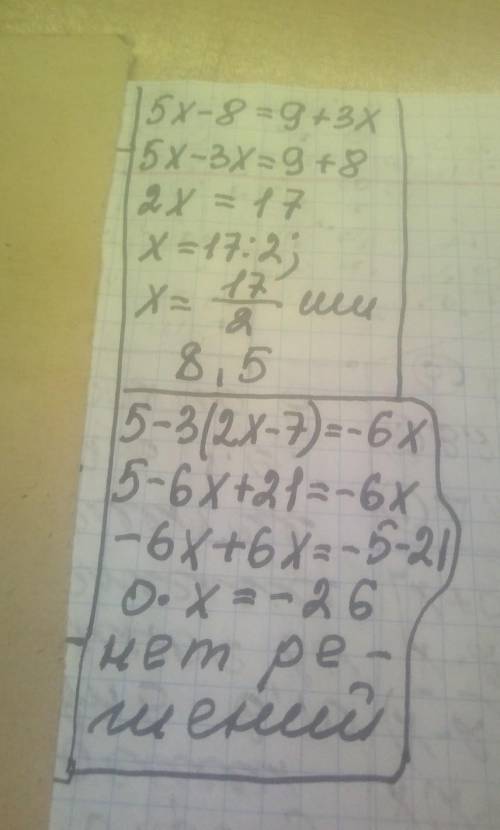 5x-8=9+3x
5x-3x=9+8
2x = 17
x=17:2;
x= 17/2 или
8,5
5-3(2x-7)=-6x
5-6x+21=-6x
-6x+6x=-5-21
0·x=-26
нет ре-
шений